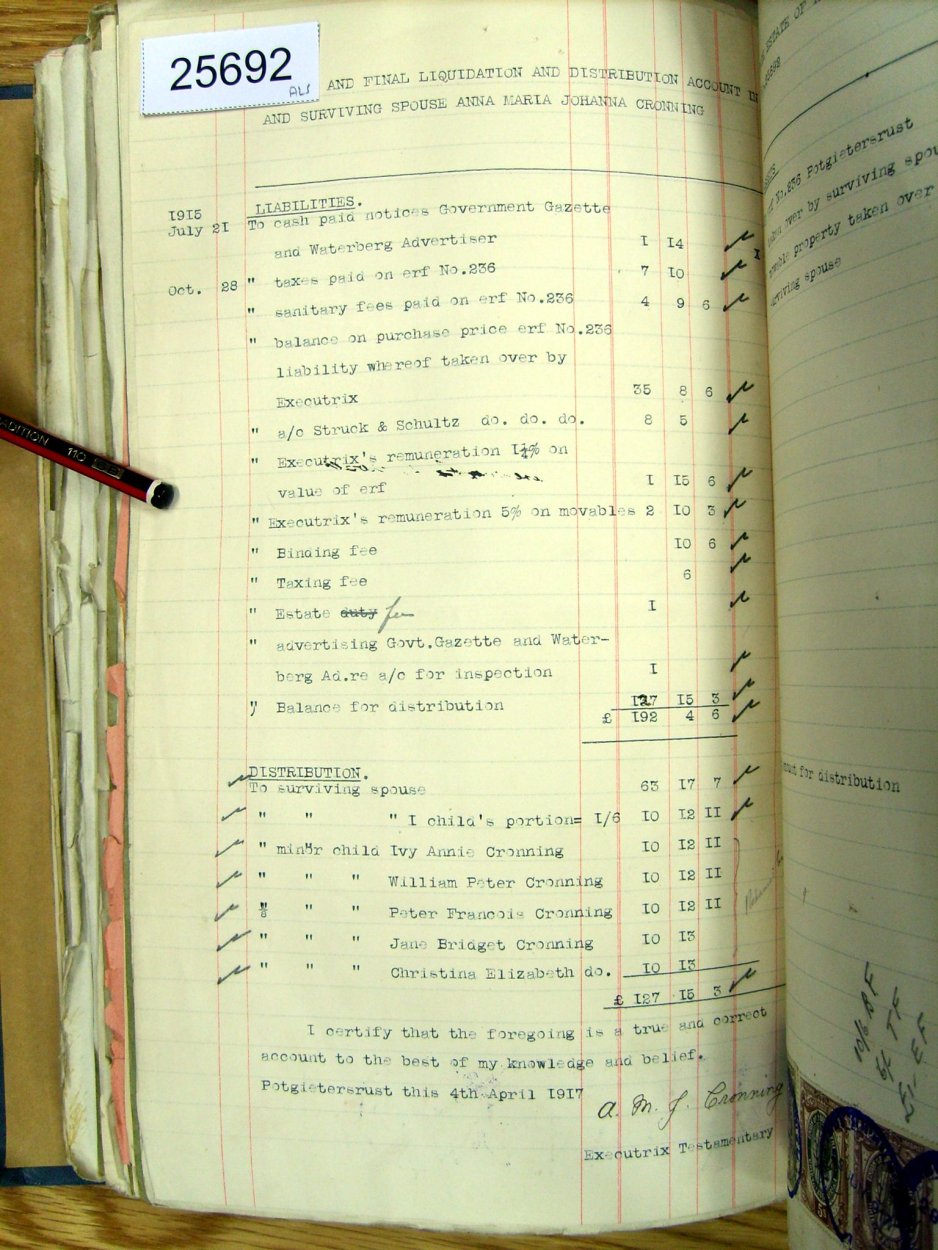 25692
ALS
AND FINAL LIQUIDATION AND DISTRIBUTION ACCOUNT IN
AND SURVIVING SPOUSE ANNA MARIA JOHANNA CRONNING
1915 LIABILITIES.
July 21 To cash paid notices Government Gazette
and Waterberg Advertiser I 14
Oct. 28 " taxes paid on erf No.236 7 10
" sanitary fees paid on erf No.236 4 9 6
" balance on purchase price erf No.236
liability whereof taken over by
Executrix 35 8 6
" a/c Struck & Schultz do. do. do. 8 5
" Executrix's remuneration I¼% on
value of erf I 15 6
" Executrix's remuneration 5% on movables 2 10 3
" Binding fee 10 6
" Taxing fee 6
" Estate duty fee I
" advertising Govt.Gazette and Water-
berg Ad.re a/c for inspection I
" Balance for distribution 127 15 3
£ 192 4 6
DISTRIBUTION.
To surviving spouse 63 17 7
" " " I child's portion= I/6 10 12 II
" minor child Ivy Annie Cronning 10 12 II
" " " William Peter Cronning 10 12 II
" " " Peter Francois Cronning 10 12 II
" " " Jane Bridget Cronning 10 13
" " " Christina Elizabeth do. 10 13
£ 127 15 3
I certify that the foregoing is a true and correct
account to the best of my knowledge and belief.
Potgietersrust this 4th April 1917
A. M. J. Cronning
Executrix Testamentary
ADITION 110
ESTATE OF
No.236 Potgietersrust
over by surviving
property taken over
surviving spouse
for distribution
10/6 BF
6/- TF
£1/- EF